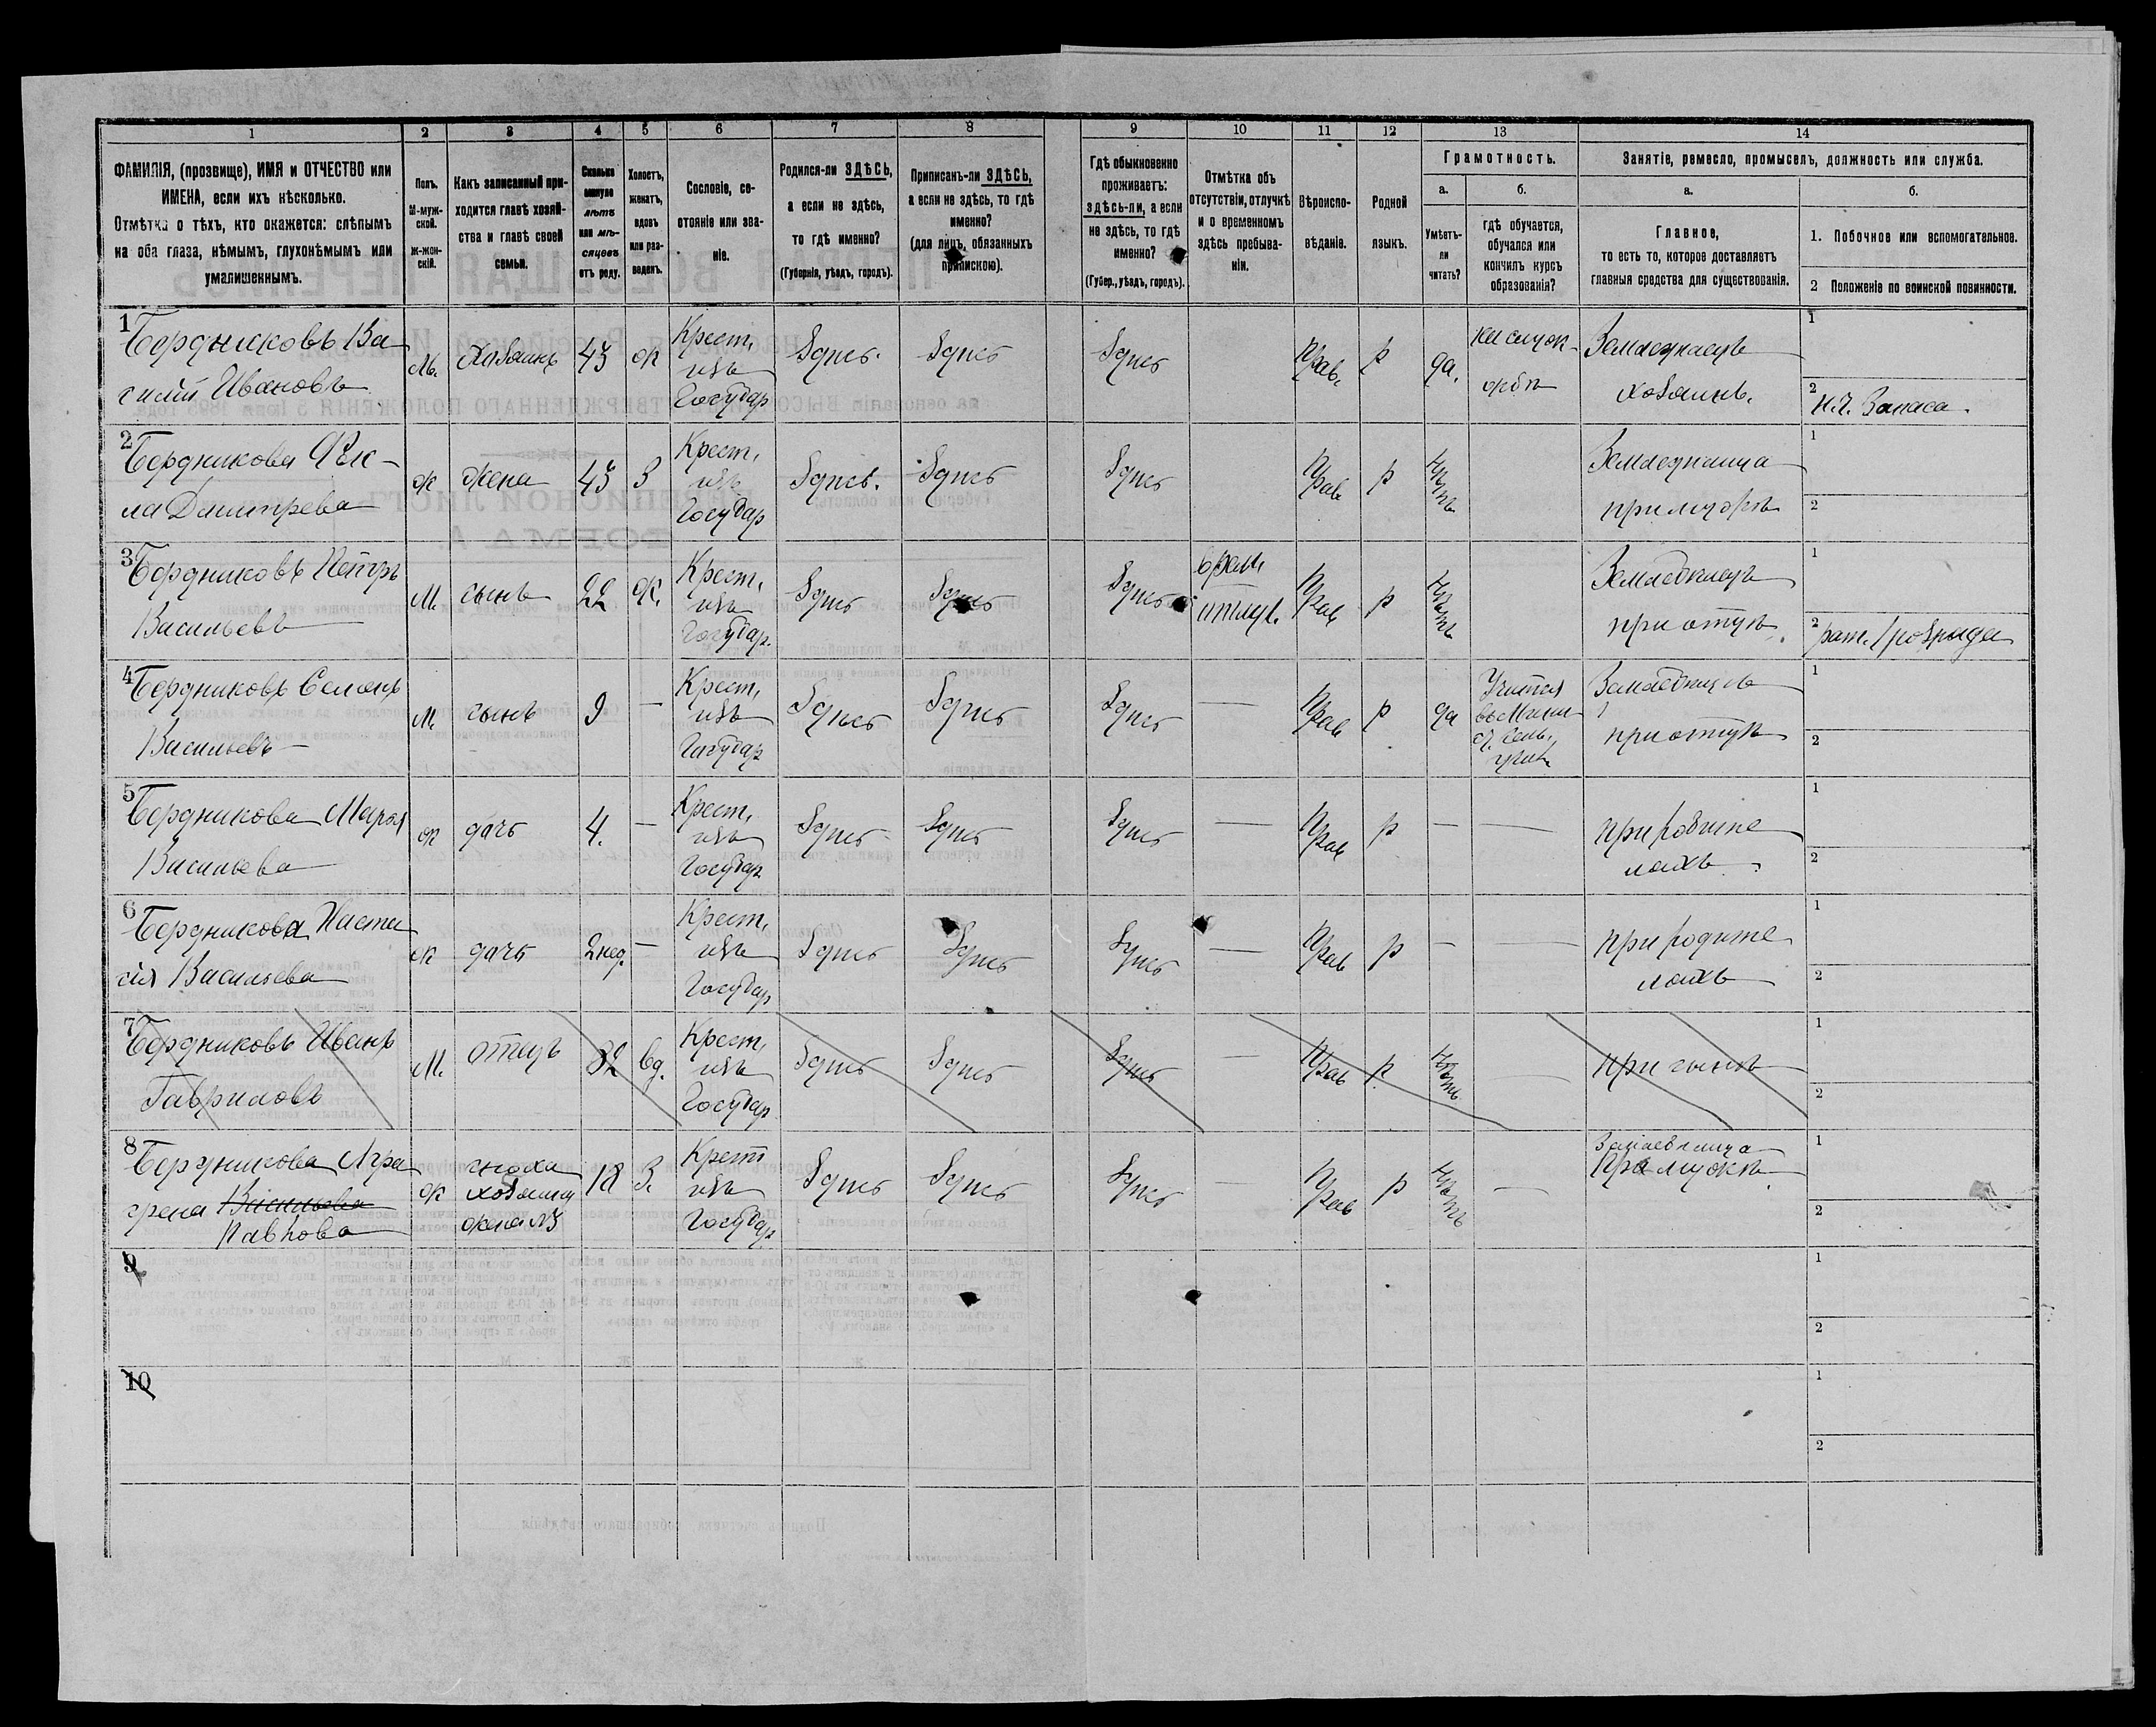 1 2 3 4 5 6 7 8 9 10 11 12 13 14
ФАМИЛІЯ, (прозвище), ИМЯ и ОТЧЕСТВО или
ИМЕНА, если ихъ нѣсколько.
Отмѣтка о тѣхъ, кто окажется: слѣпымъ
на оба глаза, нѣмымъ, глухонѣмымъ или
умалишеннымъ.
Полъ.
М-муж-
ской.
ж-жен-
скій.
Какъ записанный при-
ходится главѣ хозяй-
ства и главѣ своей
семьи.
Сколько
минуло
лѣтъ
или мѣ-
сяцевъ
отъ роду.
Холостъ,
женатъ,
вдовъ
или раз-
веденъ.
Сословіе, со-
стояніе или зва-
ніе.
Родился-ли ЗДѢСЬ,
а если не здѣсь,
то гдѣ именно?
(Губернія, уѣздъ, городъ).
Приписанъ-ли ЗДѢСЬ,
а если не здѣсь, то гдѣ
именно?
(для лицъ, обязанныхъ
припискою).
Гдѣ обыкновенно
проживаетъ:
здѣсь-ли, а если
не здѣсь, то гдѣ
именно?
(Губер., уѣздъ, городъ).
Отмѣтка объ
отсутствіи, отлучкѣ
и о временномъ
здѣсь пребыва-
ніи.
Вѣроиспо-
вѣданіе.
Родной
языкъ.
Грамотность.
а.
Умѣетъ-
ли
читать?
б.
гдѣ обучается,
обучался или
кончилъ курсъ
образованія?
Занятіе, ремесло, промыселъ, должность или служба.
а.
Главное,
то есть то, которое доставляетъ
главныя средства для существованія.
б.
1. Побочное или вспомогательное.
2 Положеніе по воинской повинности.
1
Бердниковъ Ва
силій Ивановъ
М.
Хозяинъ
43
ж
Крест,
изъ
Государ
Здѣсь.
Здѣсь
Здѣсь
Прав.
р
да.
Земледѣлецъ
хозяинъ.
1
2
Запаса.
2
Бердникова Ѳек-
ла Дмитрева
ж
жена
43
З
Крест,
изъ
Государ
Здѣсь.
Здѣсь
Здѣсь
Прав
р
нѣтъ
Земледѣлица
при мужѣ
1
2
3
Бердниковъ Петръ
Васильевъ
М.
сынъ
22
ж.
Крест,
изъ
Государ.
Здѣсь
Здѣсь
Здѣсь
врем.
отлуч.
Прав
р
нѣтъ
Земледѣлецъ
при отцѣ.
1
2
рат. 1 розряда
4
Бердниковъ Семенъ
Васильевъ
М.
сынъ
9
—
Крест,
изъ
Государ
Здѣсь
Здѣсь
Здѣсь
—
Прав
р
да
Учится
Земледѣлецъ
при отцѣ
1
2
5
Бердникова Марья
Васильева
ж
дочь
4.
—
Крест,
изъ
Государ
Здѣсь
Здѣсь
Здѣсь
—
Прав
р
—
—
при родите
ляхъ.
1
2
6
Бердникова Наста
сія Васильева
ж
дочь
2 нед.
—
Крест,
изъ
Государ
Здѣсь
Здѣсь
Здѣсь
—
Прав
р
—
—
при родите
ляхъ
1
2
7
Бердниковъ Иванъ
Гавриловъ
М.
отецъ
82
вд.
Крест,
изъ
Государ
Здѣсь
Здѣсь
Здѣсь
—
Прав
р
нѣтъ
—
при сынѣ
1
2
8
Бердникова Агра
фена Васильева
Павлова
ж
сноха
хозяину
жена №3
18
З.
Крест
изъ
Государ
Здѣсь
Здѣсь
Здѣсь
—
Прав
р
нѣтъ
—
Земледѣлица
При мужѣ.
1
2
9
1
2
10
1
2